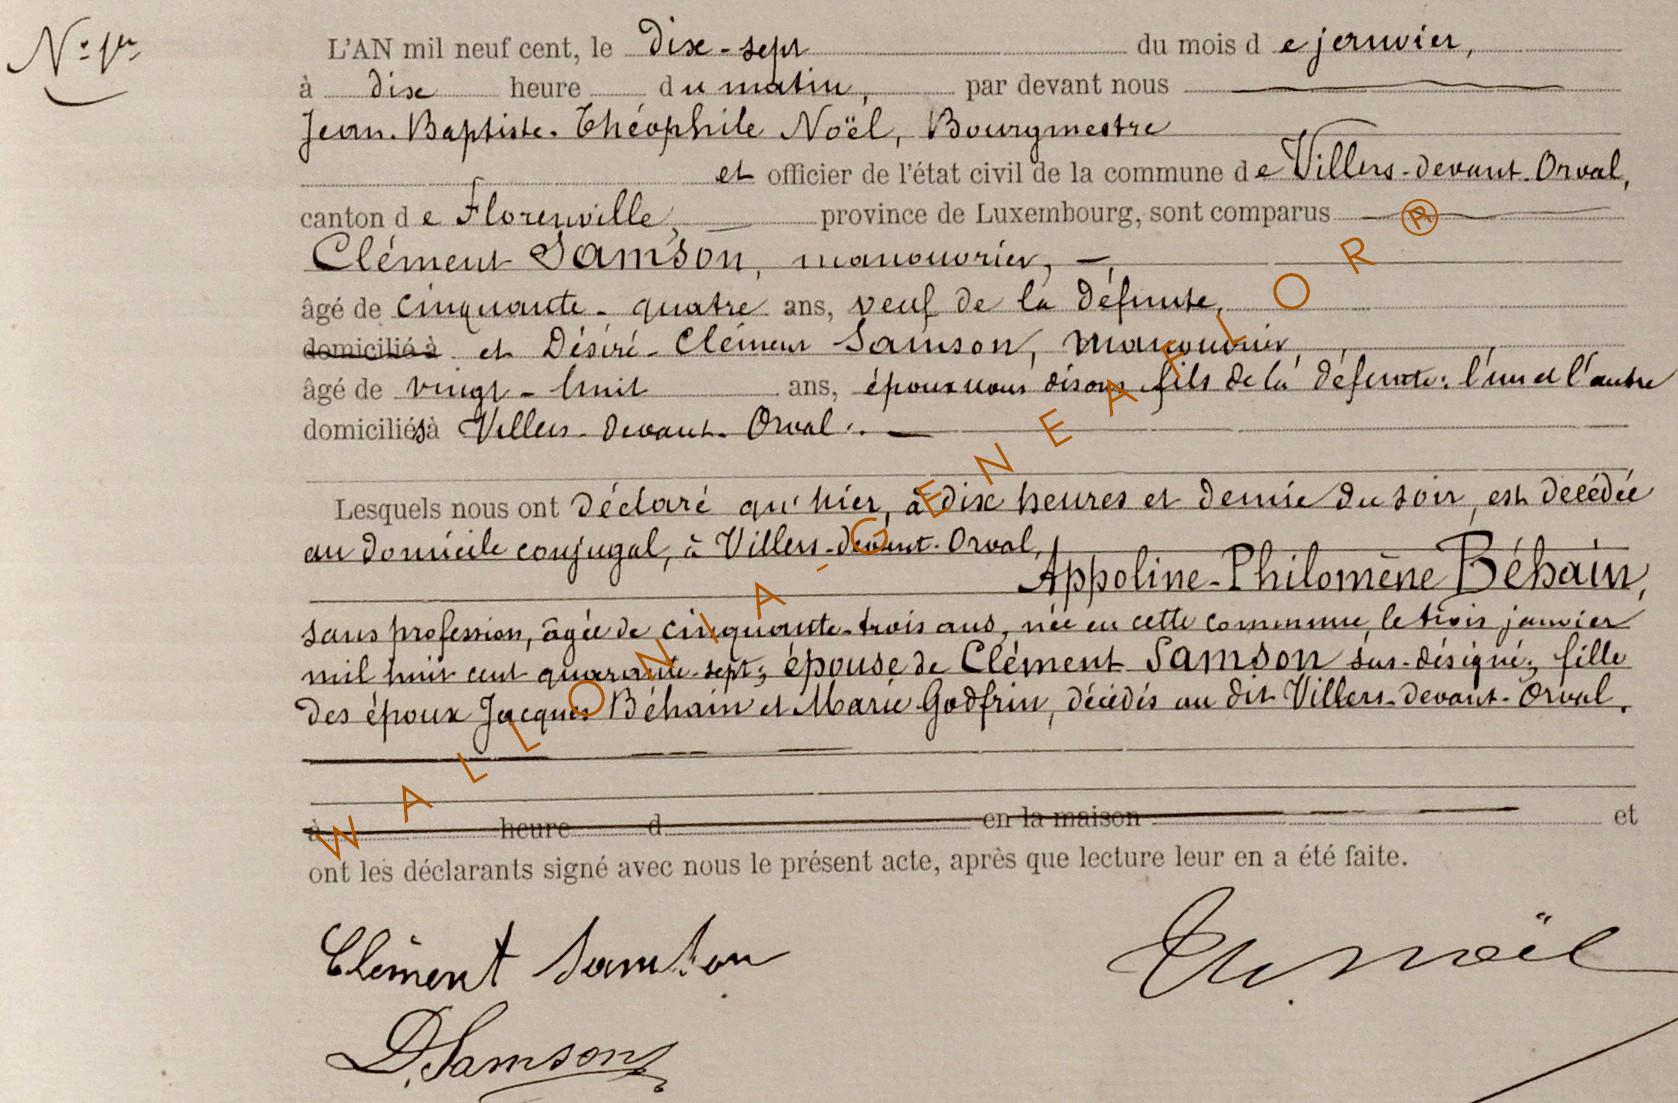 N° 1er
L'AN mil neuf cent, le dix-sept du mois de janvier,
à dix heure du matin, par devant nous
Jean-Baptiste-Théophile Noël, Bourgmestre
et officier de l'état civil de la commune de Villers-devant-Orval,
canton de Florenville, province de Luxembourg, sont comparus
Clément Samson, manouvrier,
âgé de cinquante-quatre ans, veuf de la défunte,
domicilié à et Désiré-Clément Samson, manouvrier,
âgé de vingt-huit ans, époux nous disons fils de la défunte: l'un et l'autre
domiciliés à Villers-devant-Orval.
Lesquels nous ont déclaré qu'hier, à dix heures et demie du soir, est décédée
au domicile conjugal, à Villers-devant-Orval,
Appoline-Philomène Béhain,
sans profession, âgée de cinquante-trois ans, née en cette commune, le trois janvier
mil huit cent quarante-sept; épouse de Clément Samson sus-désigné; fille
des époux Jacques Béhain et Marie Godfrin, décédés au dit Villers-devant-Orval.
à heure d en la maison et
ont les déclarants signé avec nous le présent acte, après que lecture leur en a été faite.
Clément Samson
Th. Noël
D. Samson
WALLONIA-GENEAFLOR®